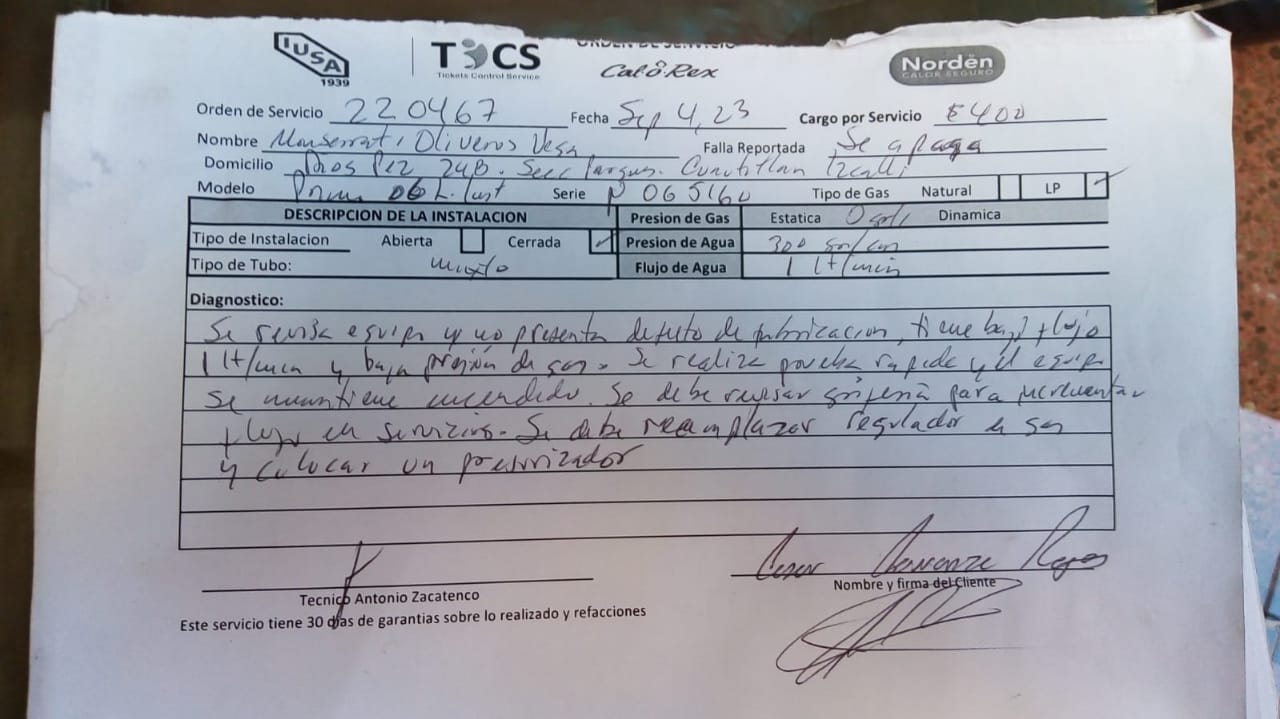 IUSA 1939 TCS Tickets Control Service ORDEN DE SERVICIO CaloRex Nordën CALOR SEGURO
Orden de Servicio 220467 Fecha Sep 4, 23 Cargo por Servicio $400
Nombre Monserrat Oliveros Vega Falla Reportada Se apaga
Domicilio 24B. Secc Parques. Cuautitlan Izcalli
Modelo 06 L. Inst Serie 065160 Tipo de Gas Natural LP ✓
DESCRIPCION DE LA INSTALACION Presion de Gas Estatica Dinamica
Tipo de Instalacion Abierta Cerrada ✓ Presion de Agua 300 gr/cm
Tipo de Tubo: mixto Flujo de Agua 1 lt/min
Diagnostico:
Se revisa equipo y no presenta defecto de fabricacion, tiene bajo flujo
1 lt/min y baja presión de gas. Se realiza prueba rapida y el equipo
se mantiene encendido. Se debe revisar griferia para incrementar
flujo en servicios. Se debe reemplazar regulador de gas
y colocar un presurizador
Cesar Reyes
Tecnico Antonio Zacatenco Nombre y firma del Cliente
Este servicio tiene 30 dias de garantias sobre lo realizado y refacciones